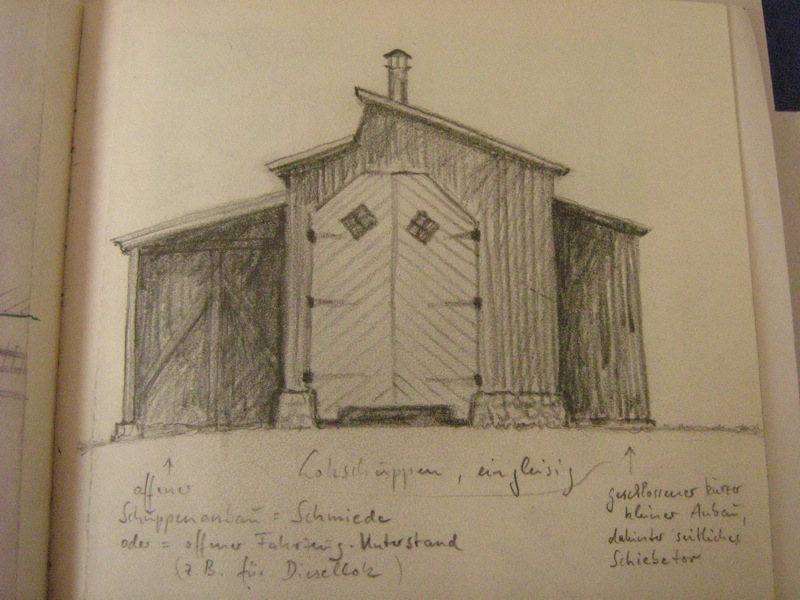 Lokschuppen, eingleisig
offener
Schuppenanbau = Schmiede
oder = offener Fahrzeug-Unterstand
(z.B. für Diesellok)
geschlossener kurzer
kleiner Anbau,
dahinter seitliches
Schiebetor